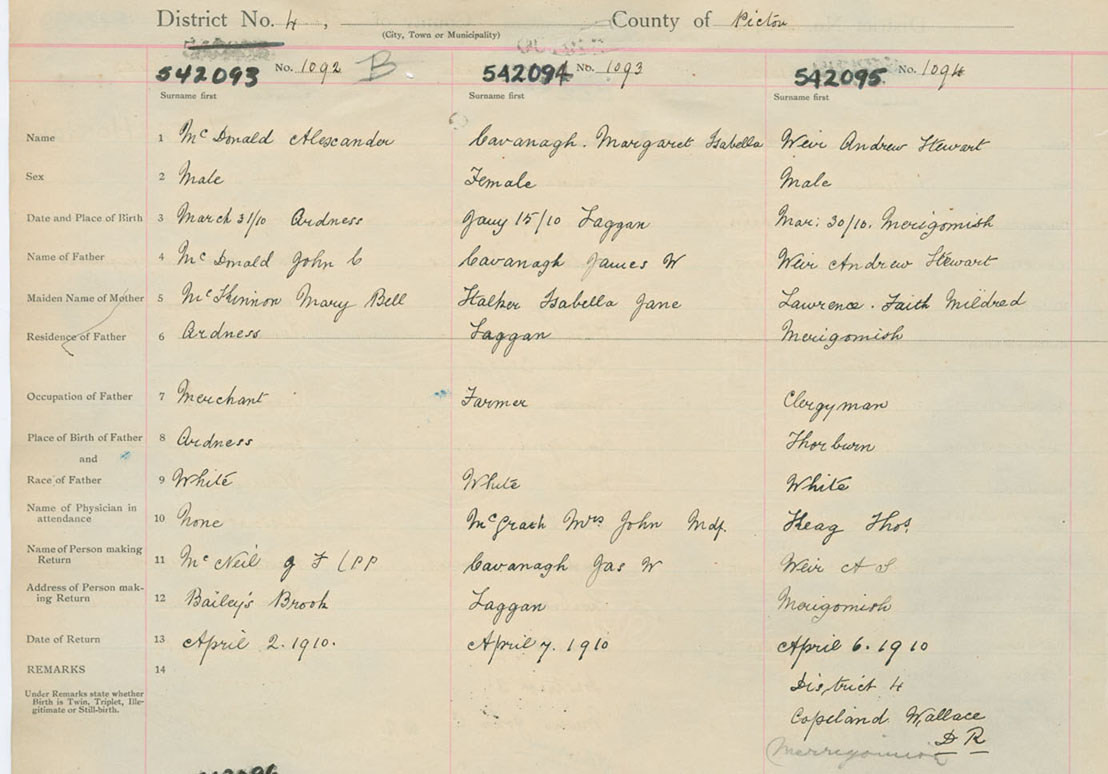 District No. 4, County of Pictou
(City, Town or Municipality)
542093 No. 1092 B 542094 No. 1093 542095 No. 1094
Surname first Surname first Surname first
Name 1 McDonald Alexander Cavanagh. Margaret Isabella Weir Andrew Stewart
Sex 2 Male Female Male
Date and Place of Birth 3 March 31/10 Ardness Jany 15/10 Laggan Mar: 30/10. Merigomish
Name of Father 4 McDonald John C Cavanagh James W Weir Andrew Stewart
Maiden Name of Mother 5 McKinnon Mary Bell Stalker Isabella Jane Lawrence. Faith Mildred
Residence of Father 6 Ardness Laggan Merigomish
Occupation of Father 7 Merchant Farmer Clergyman
Place of Birth of Father 8 Ardness Thorburn
and
Race of Father 9 White White White
Name of Physician in
attendance 10 None McGrath Mrs John Mdf. Keag Thos.
Name of Person making
Return 11 McNeil J F CPP Cavanagh Jas W Weir A S
Address of Person mak-
ing Return 12 Bailey's Brook Laggan Merigomish
Date of Return 13 April 2. 1910. April 7. 1910 April 6. 1910
REMARKS 14
Under Remarks state whether
Birth is Twin, Triplet, Ille-
gitimate or Still-birth.
District 4
Copeland Wallace
D R
Merrigomish